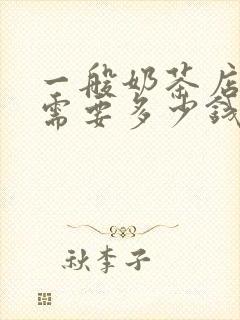 一般奶茶店
需要多少钱
秋李子